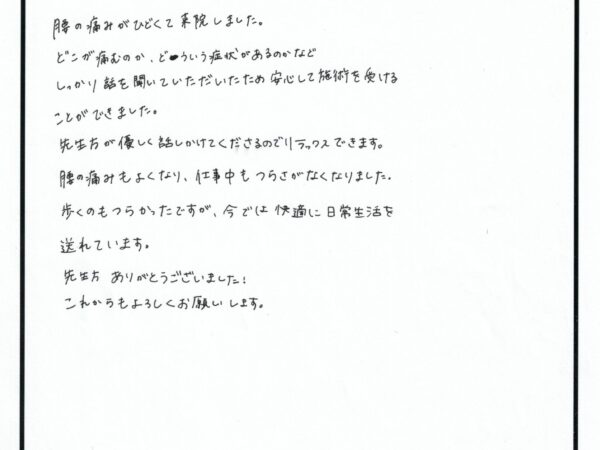 腰の痛みがひどくて来院しました。
どこが痛むのか、どういう症状があるのかなど
しっかり話を聞いていただいたため安心して施術を受ける
ことができました。
先生方が優しく話しかけてくださるのでリラックスできます。
腰の痛みもよくなり、仕事中もつらさがなくなりました。
歩くのもつらかったですが、今では快適に日常生活を
送れています。
先生方 ありがとうございました!
これからもよろしくお願いします。